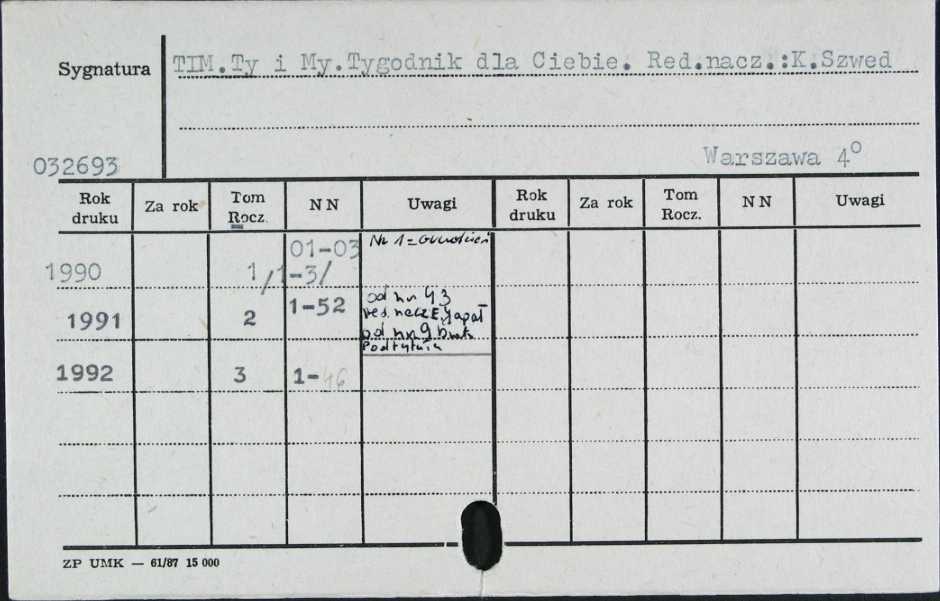 Sygnatura TIM.Ty i My.Tygodnik dla Ciebie. Red.nacz.:K.Szwed
032693 Warszawa 4°
Rok druku Za rok Tom Rocz. NN Uwagi Rok druku Za rok Tom Rocz. NN Uwagi
01-03 Nr 1=Grudzień
1990 1 /1-3/
1991 2 1-52 od nr 43
red. nacz E.
od nr 9 brak
Podtytułu
1992 3 1-46
ZP UMK — 61/87 15 000